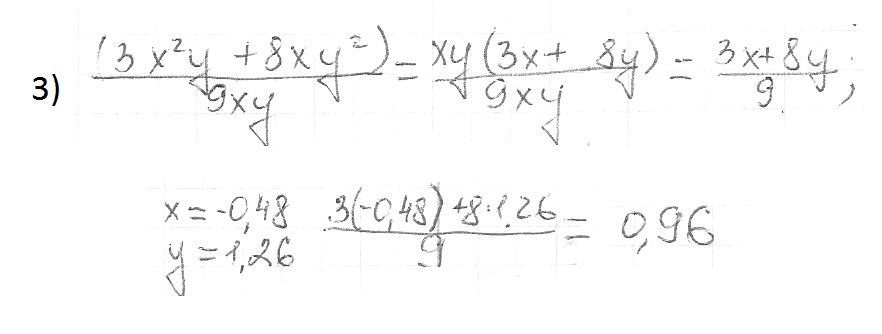 3) (3x²y + 8xy²)/9xy = xy(3x + 8y)/9xy = 3x+8y/9;
x = -0,48 3(-0,48)+8·1,26/9 = 0,96
y = 1,26